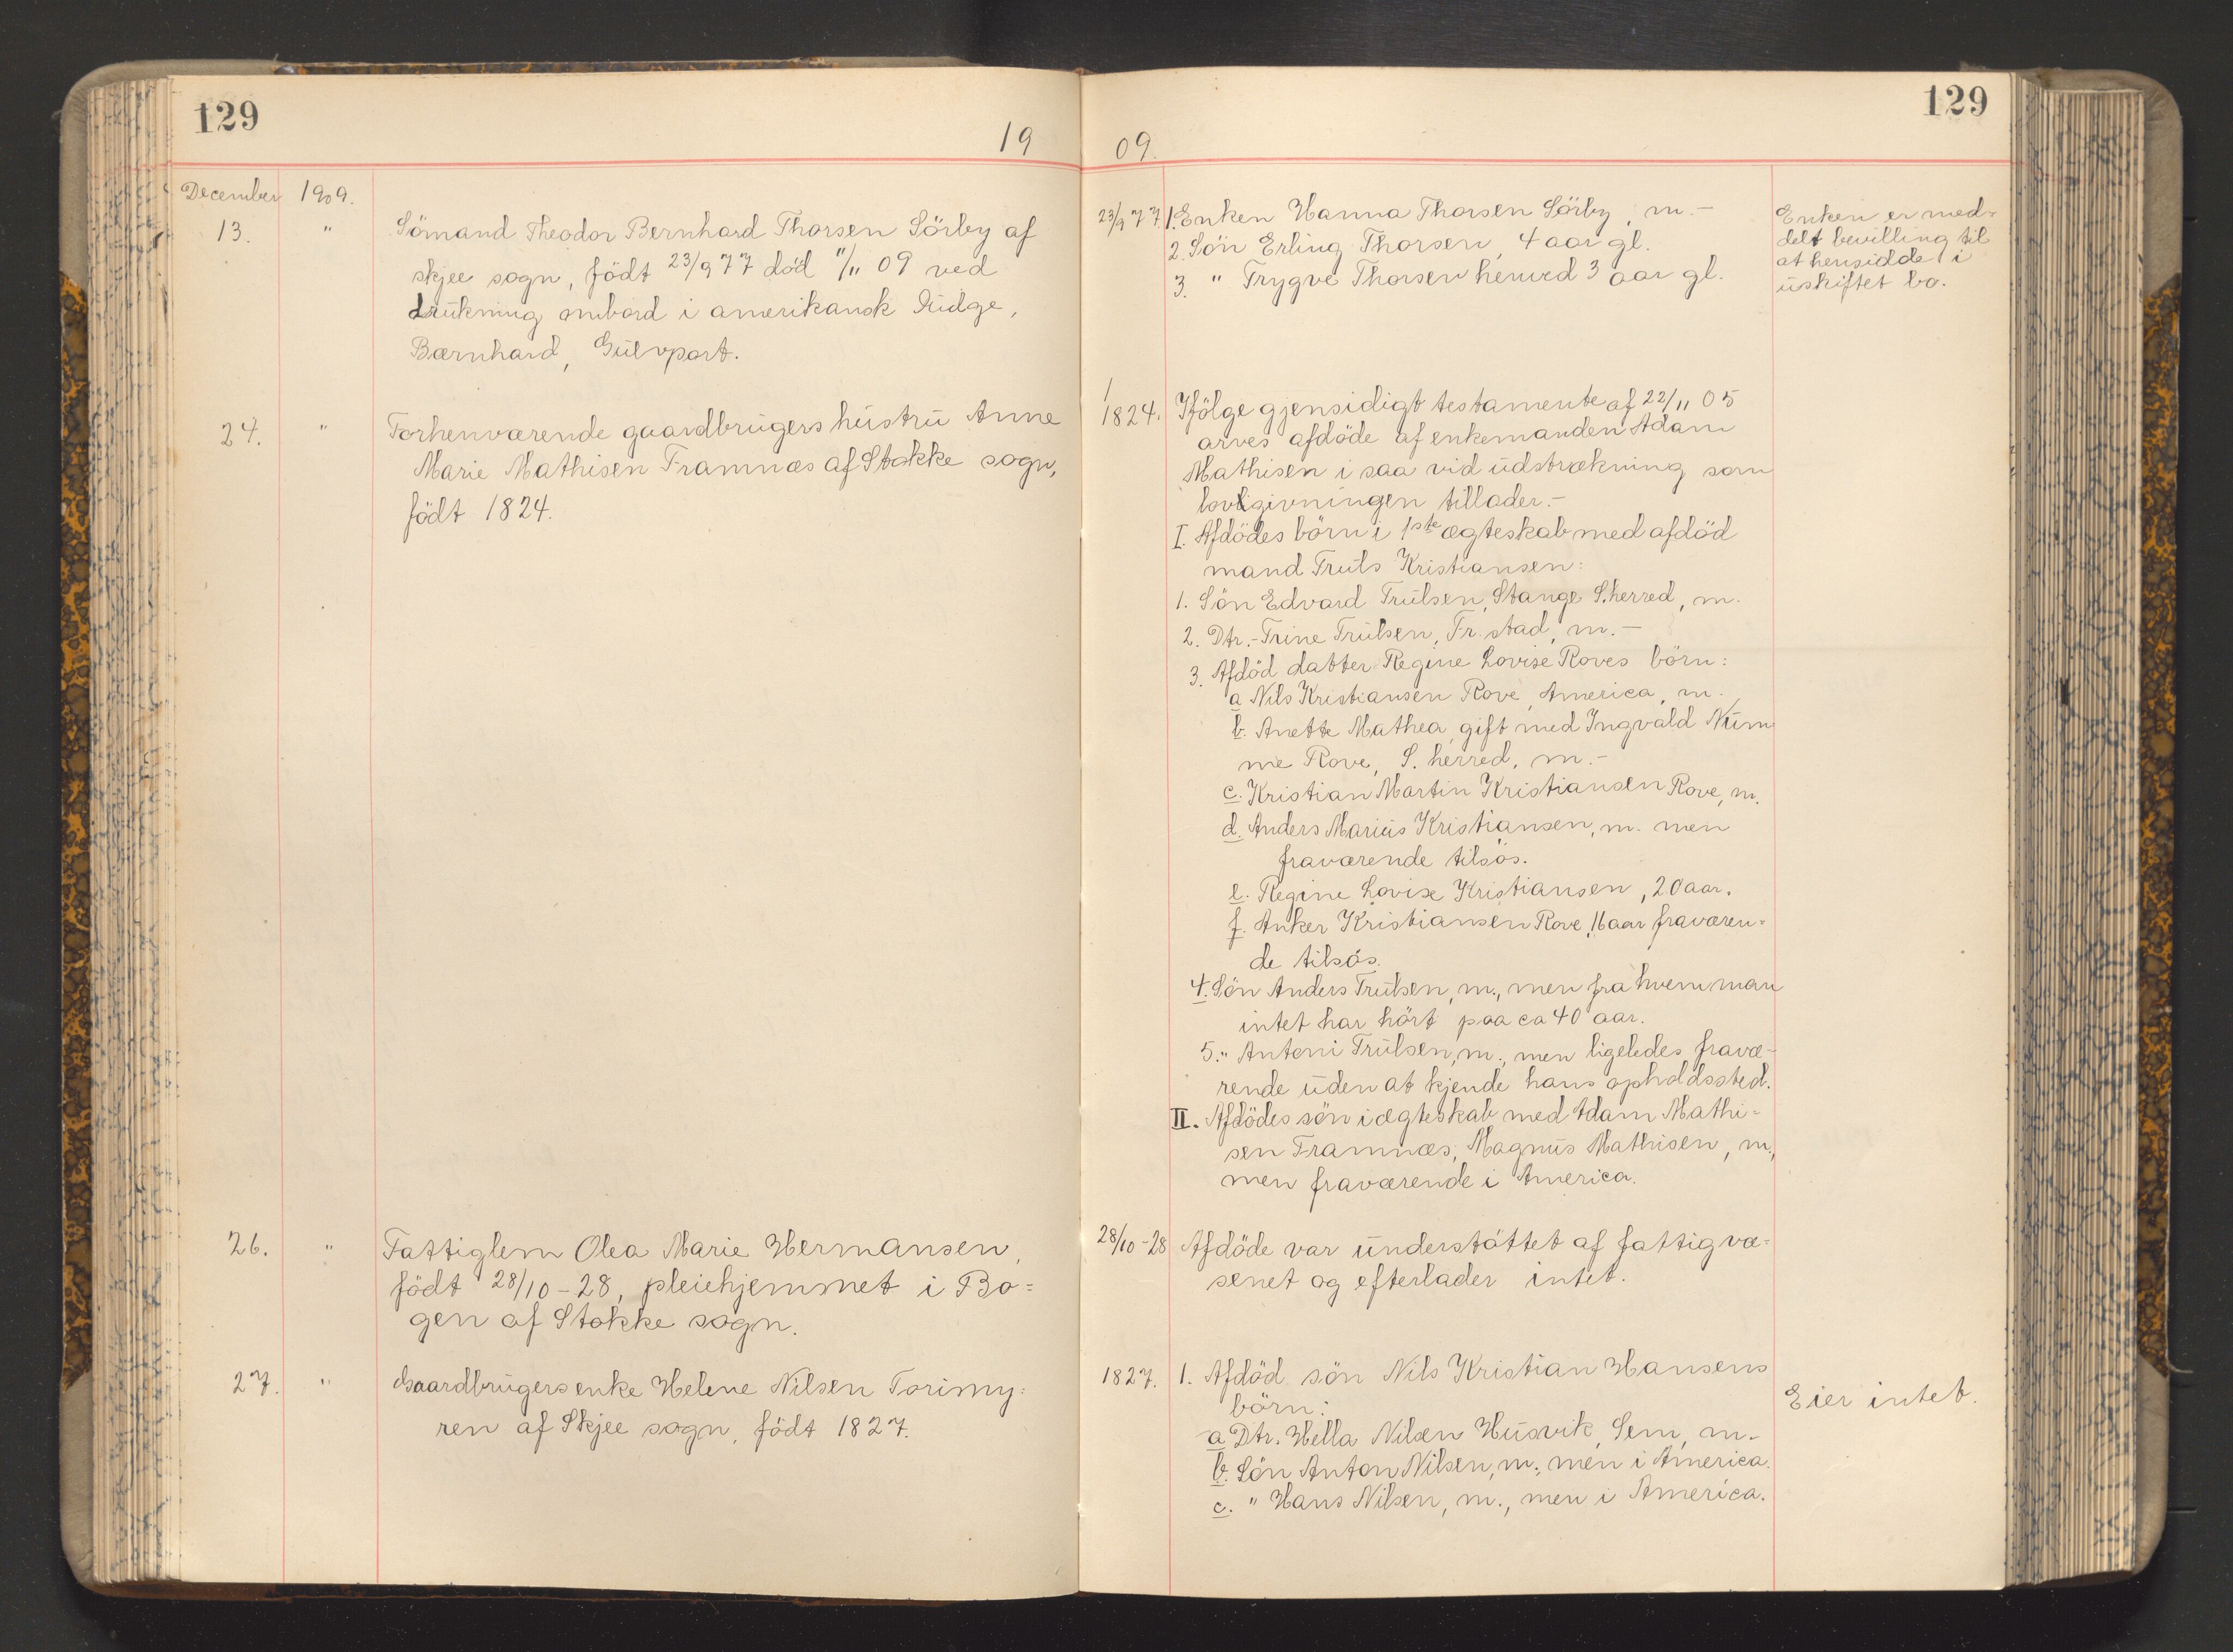 129
129
19 09.
December 1909.
13. " Sömand Theodor Bernhard Thorsen Sörby af
skjee sogn, födt 23/9 77 död 11/11 09 ved
drukning ombord i amerikansk
Bærnhard, Gulvport.
23/9 77. 1. Enken Hanna Thorsen Sörby, m.-
2. Sön Erling Thorsen, 4 aar gl.
3. " Trygve Thorsen henved 3 aar gl.
Enken er med=
delt bevilling til
at hensidde i
uskiftet bo.
24. " Forhenværende gaardbrugers hustru Anne
Marie Mathisen Framnæs af Stokke sogn,
födt 1824.
1824. Ifölge gjensidigt testamente af 22/11 05
arves afdöde af enkemanden Adam
Mathisen i saa vid udstrækning som
lovgivningen tillader.-
I. Afdödes börn i 1ste ægteskab med afdöd
mand Truls Kristiansen:
1. Sön Edvard Trulsen, Stange S.herred, m.
2. Dtr.- Trine Trulsen, Fr.stad, m.-
3. Afdöd datter Regine Lovise Roves börn:
a Nils Kristiansen Rove, America, m.
b. Anette Mathea, gift med Ingvald Num
me Rove, S. herred, m.-
c. Kristian Martin Kristiansen Rove, m.
d. Anders Marius Kristiansen, m. men
fraværende tilsös.
e. Regine Lovise Kristiansen, 20 aar.
f. Anker Kristiansen Rove, 16 aar fraværen=
de tilsös.
4. Sön Anders Trulsen, m., men fra hvem man
intet har hört paa ca 40 aar.
5. " Antoni Trulsen, m., men ligeledes fravæ-
rende uden at kjende hans opholdssted.
II. Afdödes sön i ægteskab med Adam Mathi=
sen Framnæs, Magnus Mathisen, m.,
men fraværende i America.
26. " Fattiglem Olea Marie Hermansen,
födt 28/10-28, pleiehjemmet i Bo=
gen af Stokke sogn.
28/10-28 Afdöde var understöttet af fattigvæ=
senet og efterlader intet.
27. " Gaardbrugersenke Helene Nilsen Torimy=
ren af Skjee sogn, födt 1827.
1827. 1. Afdöd sön Nils Kristian Hansens
börn:
a Dtr. Hella Nilsen Husvik, Sem, m.-
b. Sön Anton Nilsen, m., men i America.
c. " Hans Nilsen, m., men i America.
Eier intet.